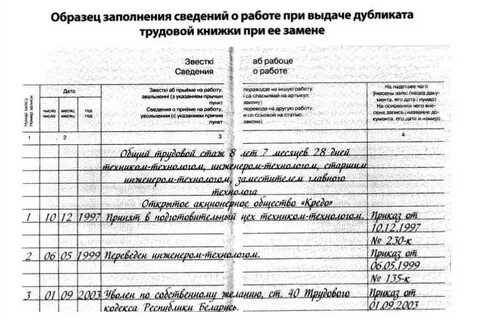 Образец заполнения сведений о работе при выдаче дубликата
трудовой книжки при ее замене
Звесткі аб рабоце
Сведения о работе
Номер запісу
Номер записи
Дата
число месяц год
Звесткі аб прыёме на работу, переводзе на іншую работу
звальненні (с указанием причин і са спасылкай на артыкул,
пункт закону)
Сведения о приеме на работу, переводе на другую работу
увольнении (с указанием причин и со ссылкой на статью,
пункт закона)
На падставе чаго
унесены запіс (назва доку-
мента, яго дата і нумар)
На основании чего вне-
сена запись (название до-
кумента, его дата и номер)
1 2 3 4
Общий трудовой стаж 8 лет 7 месяцев 28 дней
техником-технологом, инженером-технологом, старшим
инженером-технологом, заместителем главного
технолога
Открытое акционерное общество «Кредо»
1 10 12 1997 Принят в подготовительный цех техником-технологом. Приказ от
10.12.1997
№ 230-к
2 06 05 1999 Переведен инженером-технологом. Приказ от
06.05.1999
№ 135-к
3 01 09 2003 Уволен по собственному желанию, ст. 40 Трудового Приказ от
кодекса Республики Беларусь. 01.09.2003